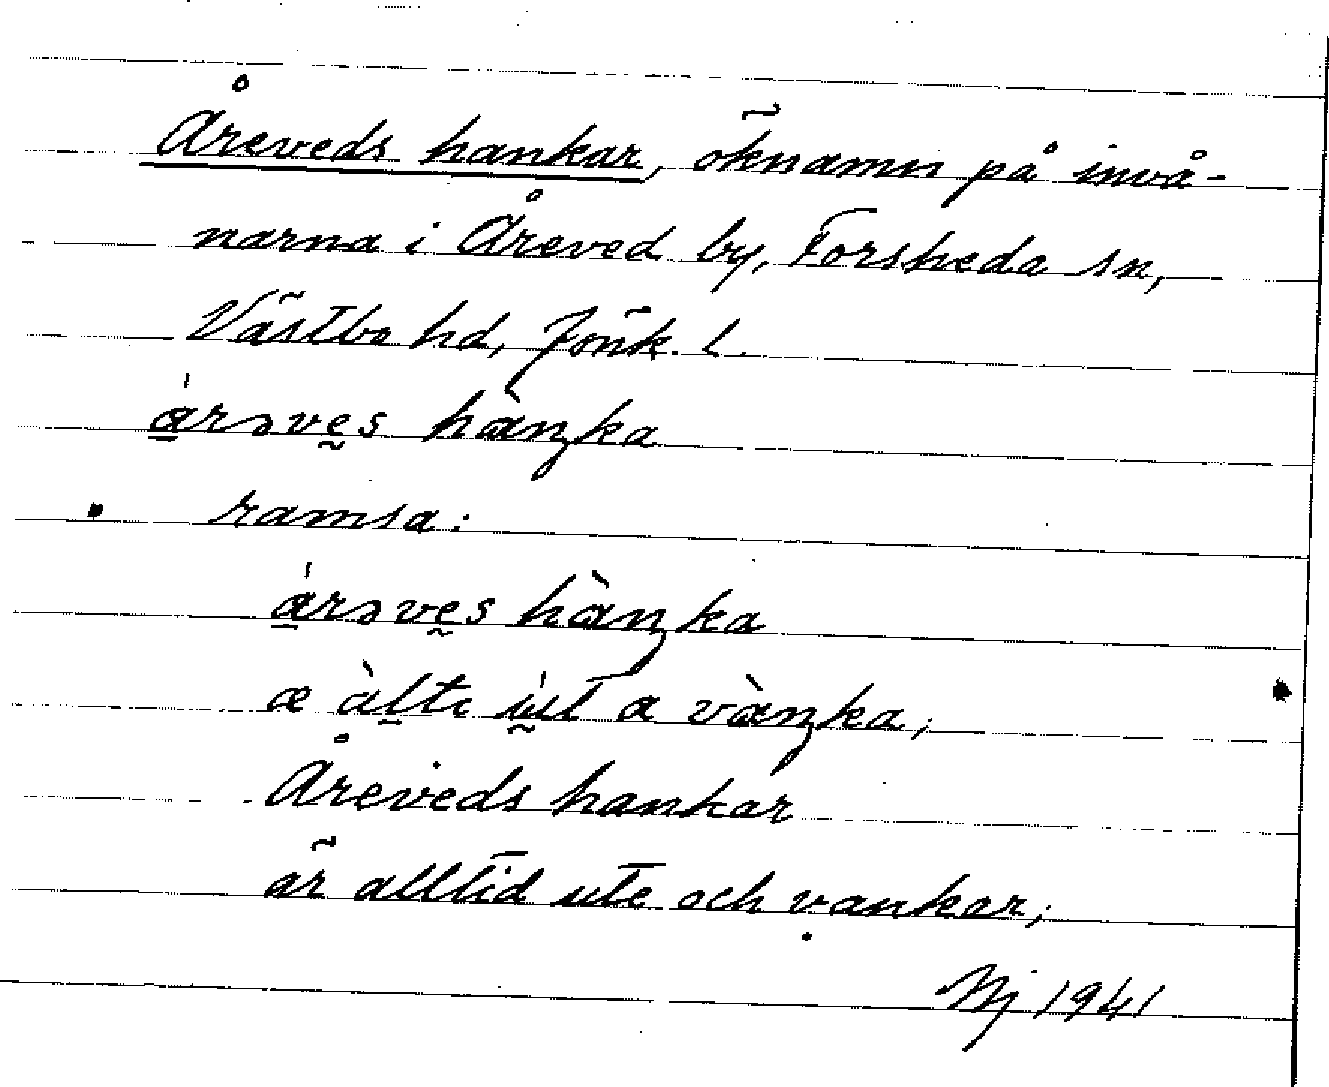 Åreveds hankar, öknamn på invå-
narna i Åreved by, Forsheda sn,
Västbo hd, Jönk. l.
árəves hàŋka
ramsa:
árəves hàŋka
æ àlti út a vàŋka,
Åreveds hankar
är alltid ute och vankar,
Nj 1941